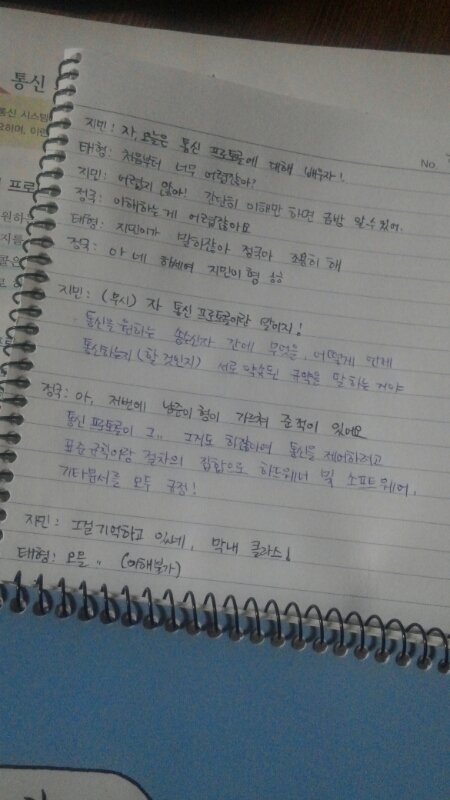 통신
통신 시스템
No.
지민: 자, 오늘은 통신 프로토콜에 대해 배우자!
태형: 처음부터 너무 어렵잖아?
지민: 어렵지 않아! 간단히 이해만 하면 금방 알 수 있어.
정국: 이해하는 게 어렵잖아요
태형: 지민이가 말하잖아 정국아 조용히 해
정국: 아 네 하세여 지민이 형
지민: (무시) 자 통신 프로토콜이란 말이지!
통신을 원하는 송수신자 간에 무엇을, 어떻게 언제
통신하는지 (할 것인지) 서로 약속된 규약을 말하는 거야
정국: 아, 저번에 남준이 형이 가르쳐 준적이 있어요
통신 프로토콜이 그.. 그거도 하잖아여 통신을 제어하려고
표준 규칙이랑 절차의 집합으로 하드웨어 및 소프트웨어,
기타문서를 모두 규정!
지민: 그걸 기억하고 있네, 막내 클라스!
태형: 오올 .. (이해불가)